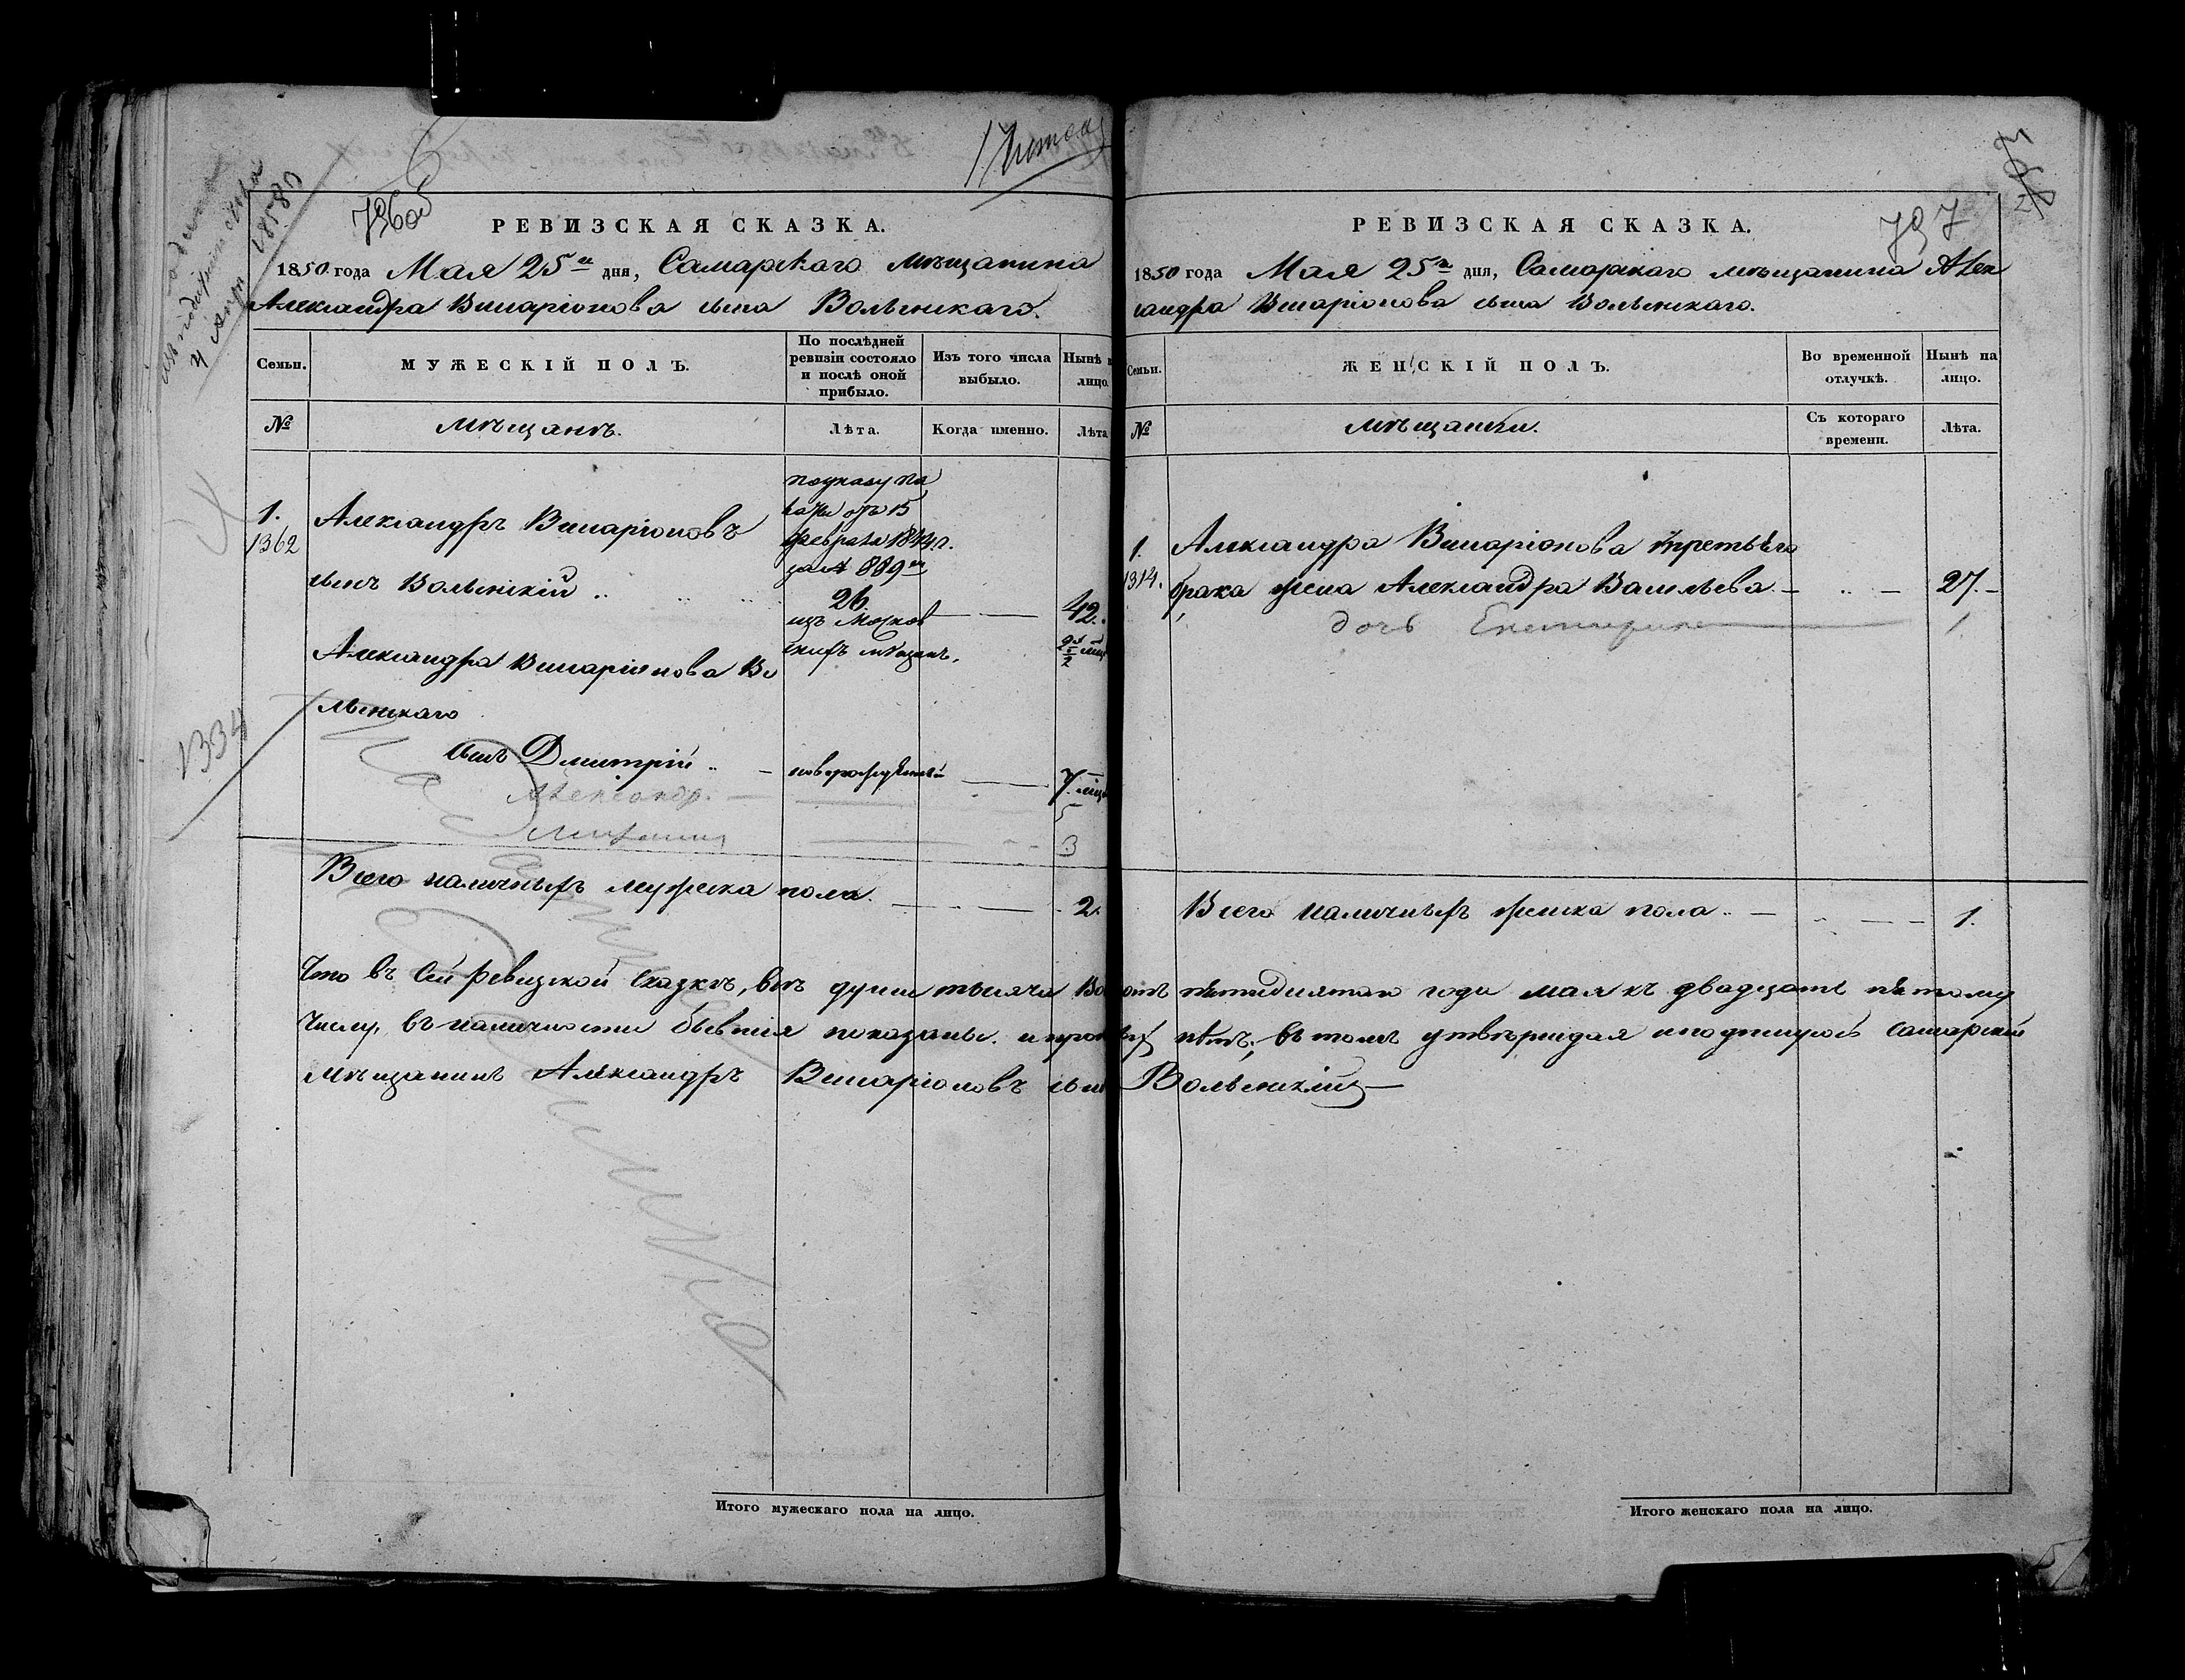 796 об
РЕВИЗСКАЯ СКАЗКА.
1850 года Мая 25го дня, Самарскаго мѣщанина
Александра Виларіонова сына Волынскаго.
Семьи. МУЖЕСКІЙ ПОЛЪ. По послѣдней ревизіи состояло и послѣ оной прибыло. Изъ того числа выбыло. Нынѣ лицо.
№ мѣщанъ. Лѣта. Когда именно. Лѣта
по указу Па
латы отъ 15
февраля 1844 г.
за № 889м
1. Александръ Виларіоновъ
1362
сынъ Волынскій 26 42.
изъ Москов
скихъ мѣщанъ.
Александра Виларіонова Во
лынскаго
1334
сынъ Дмитрій новорожденный 7 мѣс
Александр. 5
3
Всего наличныхъ мужеска пола. 2.
797
РЕВИЗСКАЯ СКАЗКА.
1850 года Мая 25го дня, Самарскаго мѣщанина Алек
сандра Виларіонова сына Волынскаго.
Семьи. ЖЕНСКІЙ ПОЛЪ. Во временной отлучкѣ. Нынѣ на лицо.
№ мѣщанки. Съ котораго времени. Лѣта.
1. Александра Виларіонова третьяго
1314. брака жена Александра Васильева 27.
дочь Екатерина 1
Всего наличныхъ женска пола 1.
Что въ сей ревизской сказкѣ, всѣ души тысяча пятидесятаго года мая къ двадцать пятому
числу, въ наличности бывшія показаны. и нѣтъ; въ томъ утверждая и подпишусь самарскій
мѣщанинъ Александръ Виларіоновъ сынъ Волынскій
Итого мужескаго пола на лицо.
Итого женскаго пола на лицо.